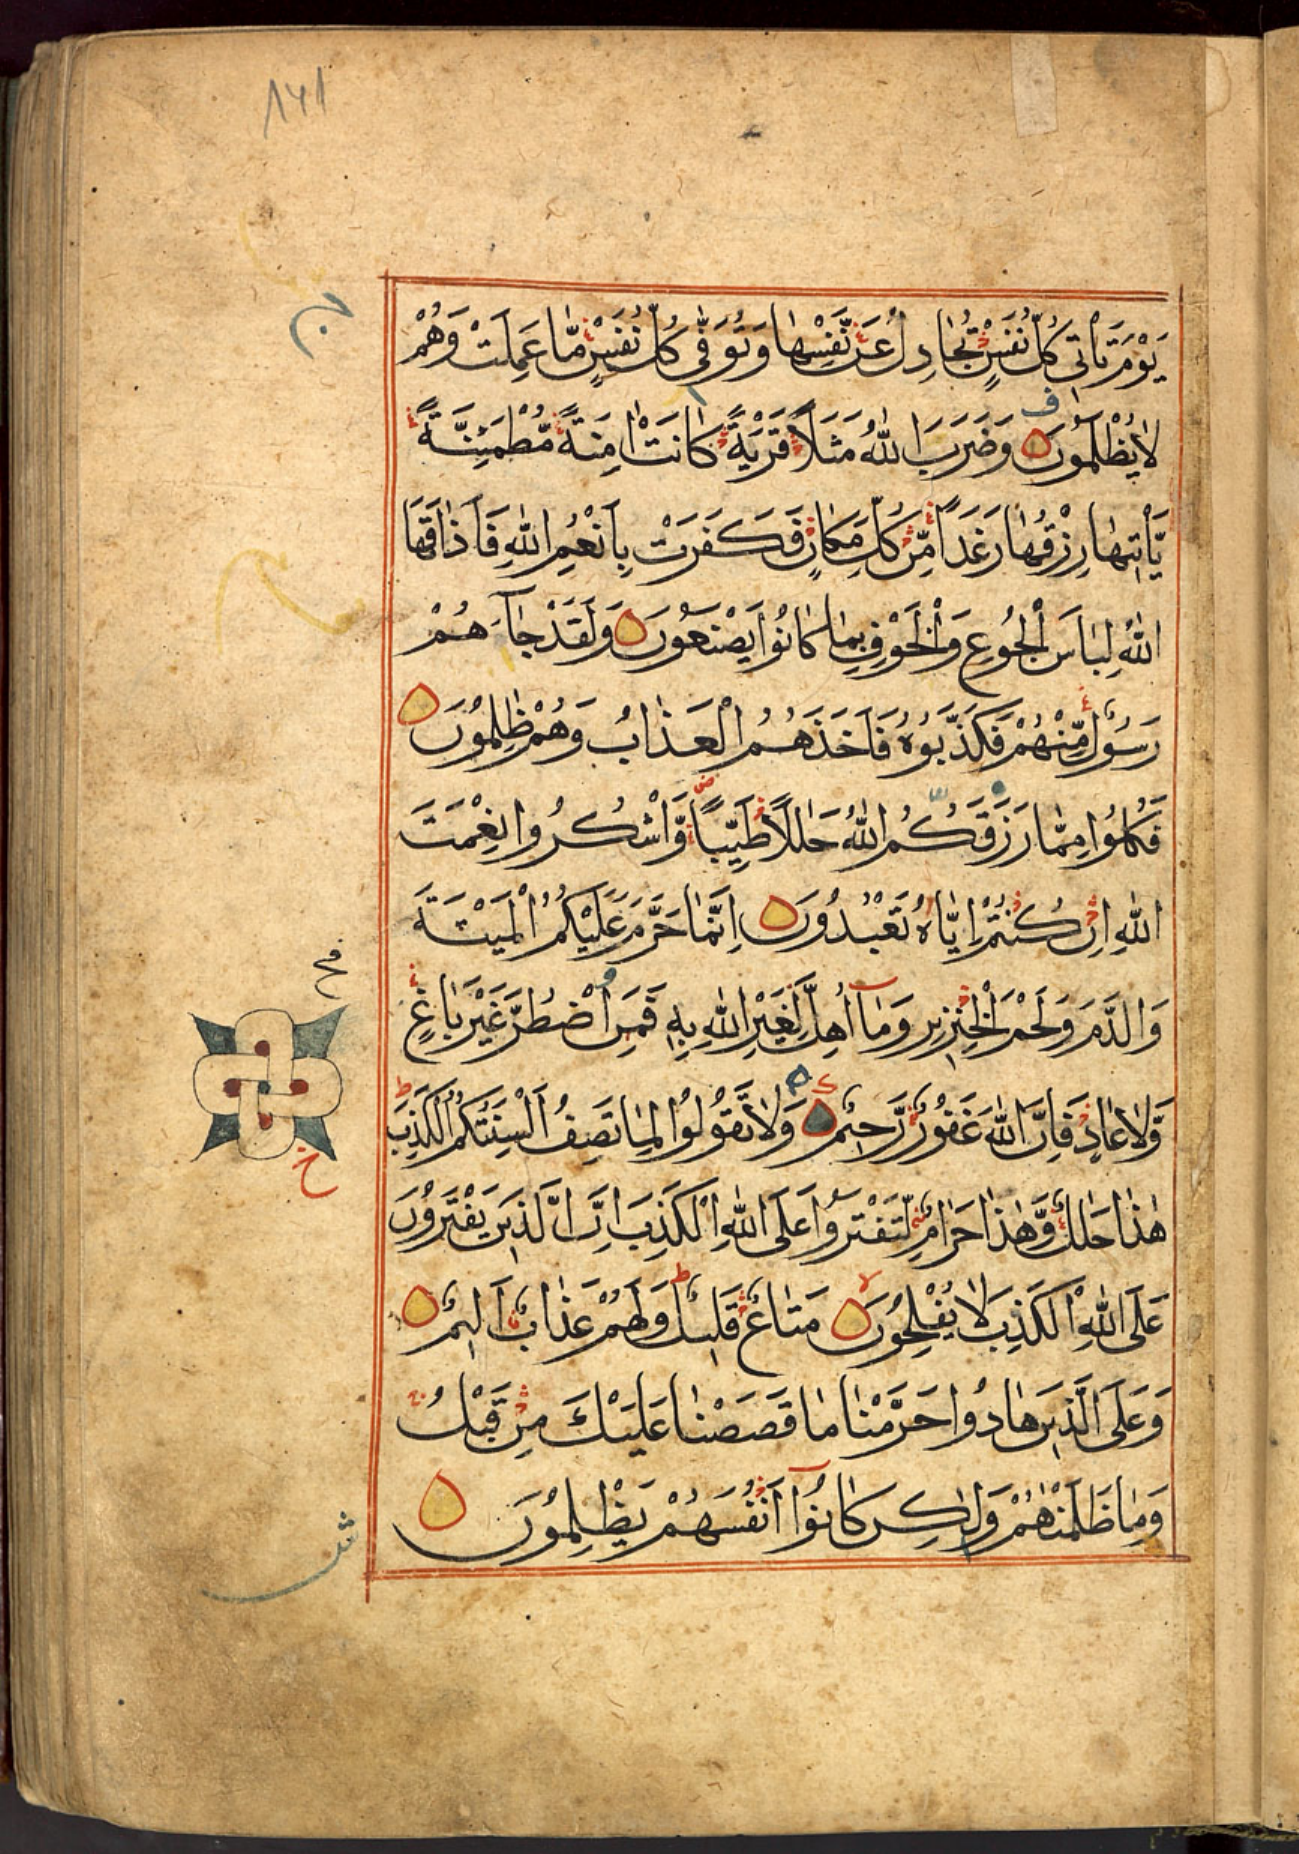 ١٧١
يَوْمَ تَأْتِي كُلُّ نَفْسٍ تُجَادِلُ عَنْ نَّفْسِهَا وَتُوَفّٰى كُلُّ نَفْسٍ مَّا عَمِلَتْ وَهُمْ
لَا يُظْلَمُوْنَ وَضَرَبَ اللّٰهُ مَثَلًا قَرْيَةً كَانَتْ اٰمِنَةً مُّطْمَئِنَّةً
يَّأْتِيْهَا رِزْقُهَا رَغَدًا مِّنْ كُلِّ مَكَانٍ فَكَفَرَتْ بِاَنْعُمِ اللّٰهِ فَاَذَاقَهَا
اللّٰهُ لِبَاسَ الْجُوْعِ وَالْخَوْفِ بِمَا كَانُوْا يَصْنَعُوْنَ وَلَقَدْ جَآءَهُمْ
رَسُوْلٌ مِّنْهُمْ فَكَذَّبُوْهُ فَاَخَذَهُمُ الْعَذَابُ وَهُمْ ظٰلِمُوْنَ
فَكُلُوْا مِمَّا رَزَقَكُمُ اللّٰهُ حَلٰلًا طَيِّبًا وَّاشْكُرُوْا نِعْمَتَ
اللّٰهِ اِنْ كُنْتُمْ اِيَّاهُ تَعْبُدُوْنَ اِنَّمَا حَرَّمَ عَلَيْكُمُ الْمَيْتَةَ
وَالدَّمَ وَلَحْمَ الْخِنْزِيْرِ وَمَآ اُهِلَّ لِغَيْرِ اللّٰهِ بِهٖ فَمَنِ اضْطُرَّ غَيْرَ بَاغٍ
وَّلَا عَادٍ فَاِنَّ اللّٰهَ غَفُوْرٌ رَّحِيْمٌ وَلَا تَقُوْلُوْا لِمَا تَصِفُ اَلْسِنَتُكُمُ الْكَذِبَ
هٰذَا حَلٰلٌ وَّهٰذَا حَرَامٌ لِّتَفْتَرُوْا عَلَى اللّٰهِ الْكَذِبَ اِنَّ الَّذِيْنَ يَفْتَرُوْنَ
عَلَى اللّٰهِ الْكَذِبَ لَا يُفْلِحُوْنَ مَتَاعٌ قَلِيْلٌ وَلَهُمْ عَذَابٌ اَلِيْمٌ
وَعَلَى الَّذِيْنَ هَادُوْا حَرَّمْنَا مَا قَصَصْنَا عَلَيْكَ مِنْ قَبْلُ
وَمَا ظَلَمْنٰهُمْ وَلٰكِنْ كَانُوْٓا اَنْفُسَهُمْ يَظْلِمُوْنَ